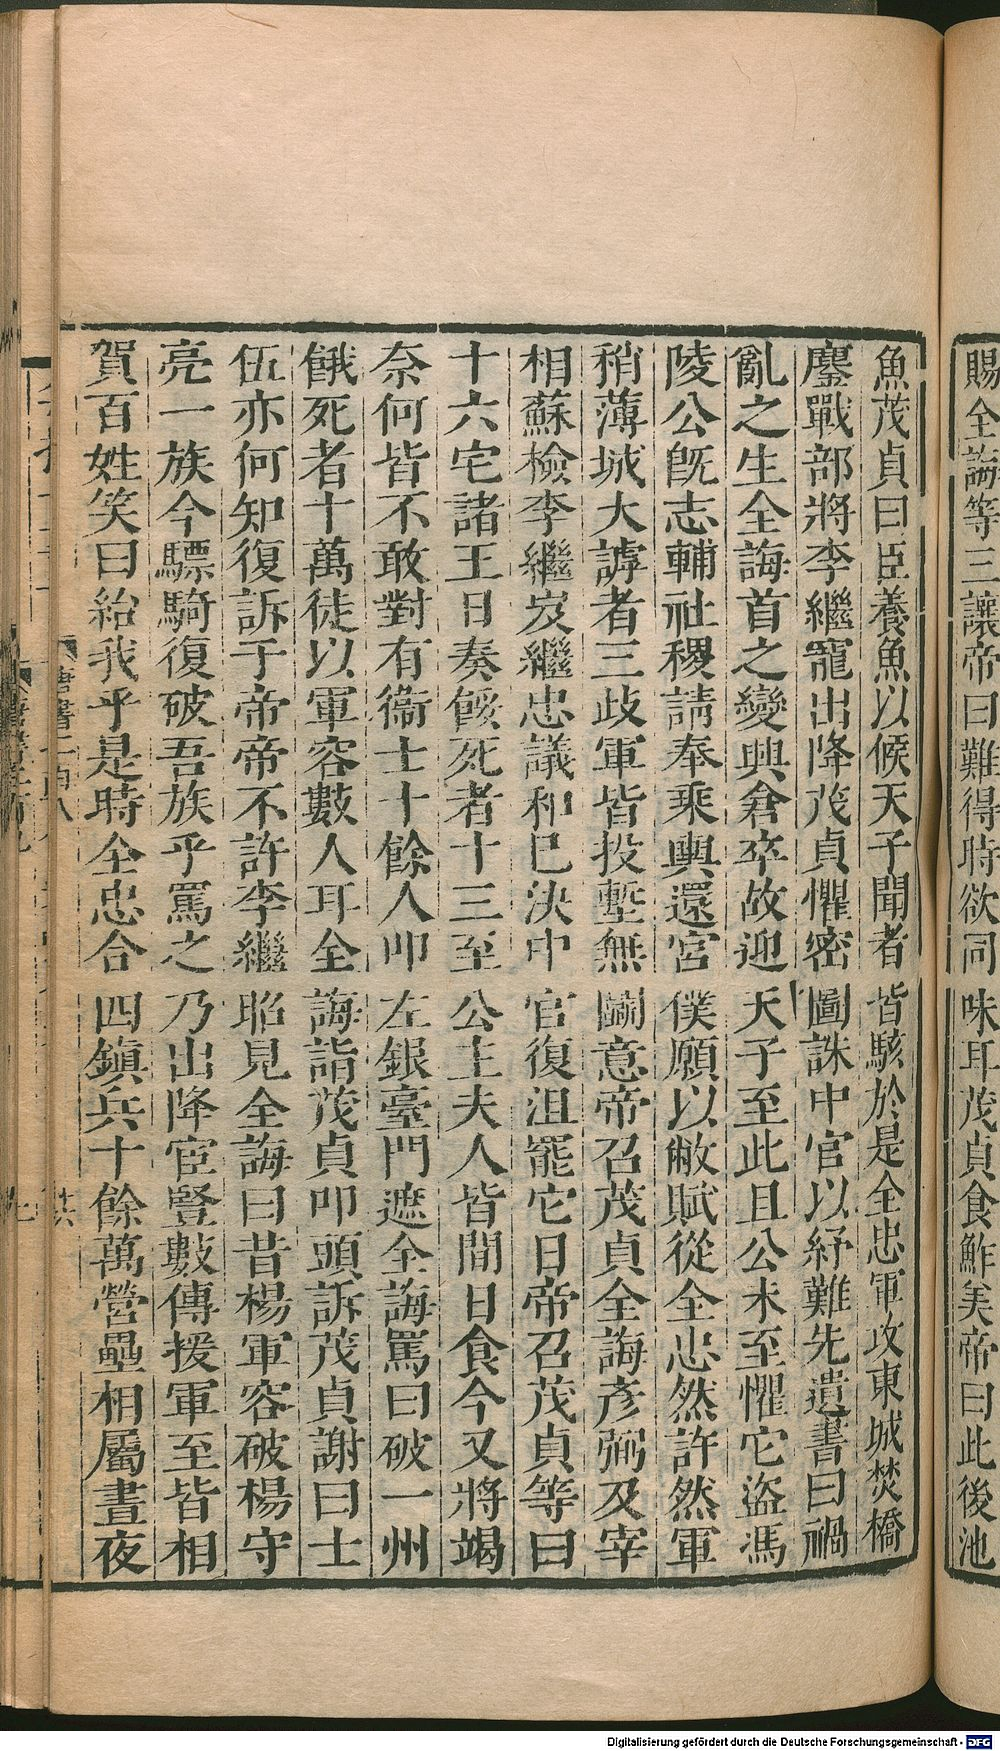 賜全誨等三讓帝曰難得時欲同味耳茂貞食鮓美帝曰此後池
魚茂貞曰臣養魚以候天子聞者皆駭於是全忠軍攻東城焚橋
鏖戰部將李繼寵出降茂貞懼密圖誅中官以紓難先遺書曰禍
亂之生全誨首之變興倉卒故迎天子至此且公未至懼它盜馮
陵公旣志輔社稷請奉乘輿還宮僕願以敝賦從全忠然許然軍
稍薄城大謼者三歧軍皆投塹無鬭意帝召茂貞全誨彥弼及宰
相蘇檢李繼岌繼忠議和巳決中官復沮罷它日帝召茂貞等曰
十六宅諸王日奏餒死者十三至公主夫人皆間日食今又將竭
奈何皆不敢對有衞士十餘人叩左銀臺門遮全誨罵曰破一州
餓死者十萬徒以軍容數人耳全誨詣茂貞叩頭訴茂貞謝曰士
伍亦何知復訴于帝帝不許李繼昭見全誨曰昔楊軍容破楊守
亮一族今驃騎復破吾族乎罵之乃出降宦豎數傳援軍至皆相
賀百姓笑曰紿我乎是時全忠合四鎭兵十餘萬營壘相屬晝夜
唐書二百八
廿六
Digitalisierung gefördert durch die Deutsche Forschungsgemeinschaft - DFG